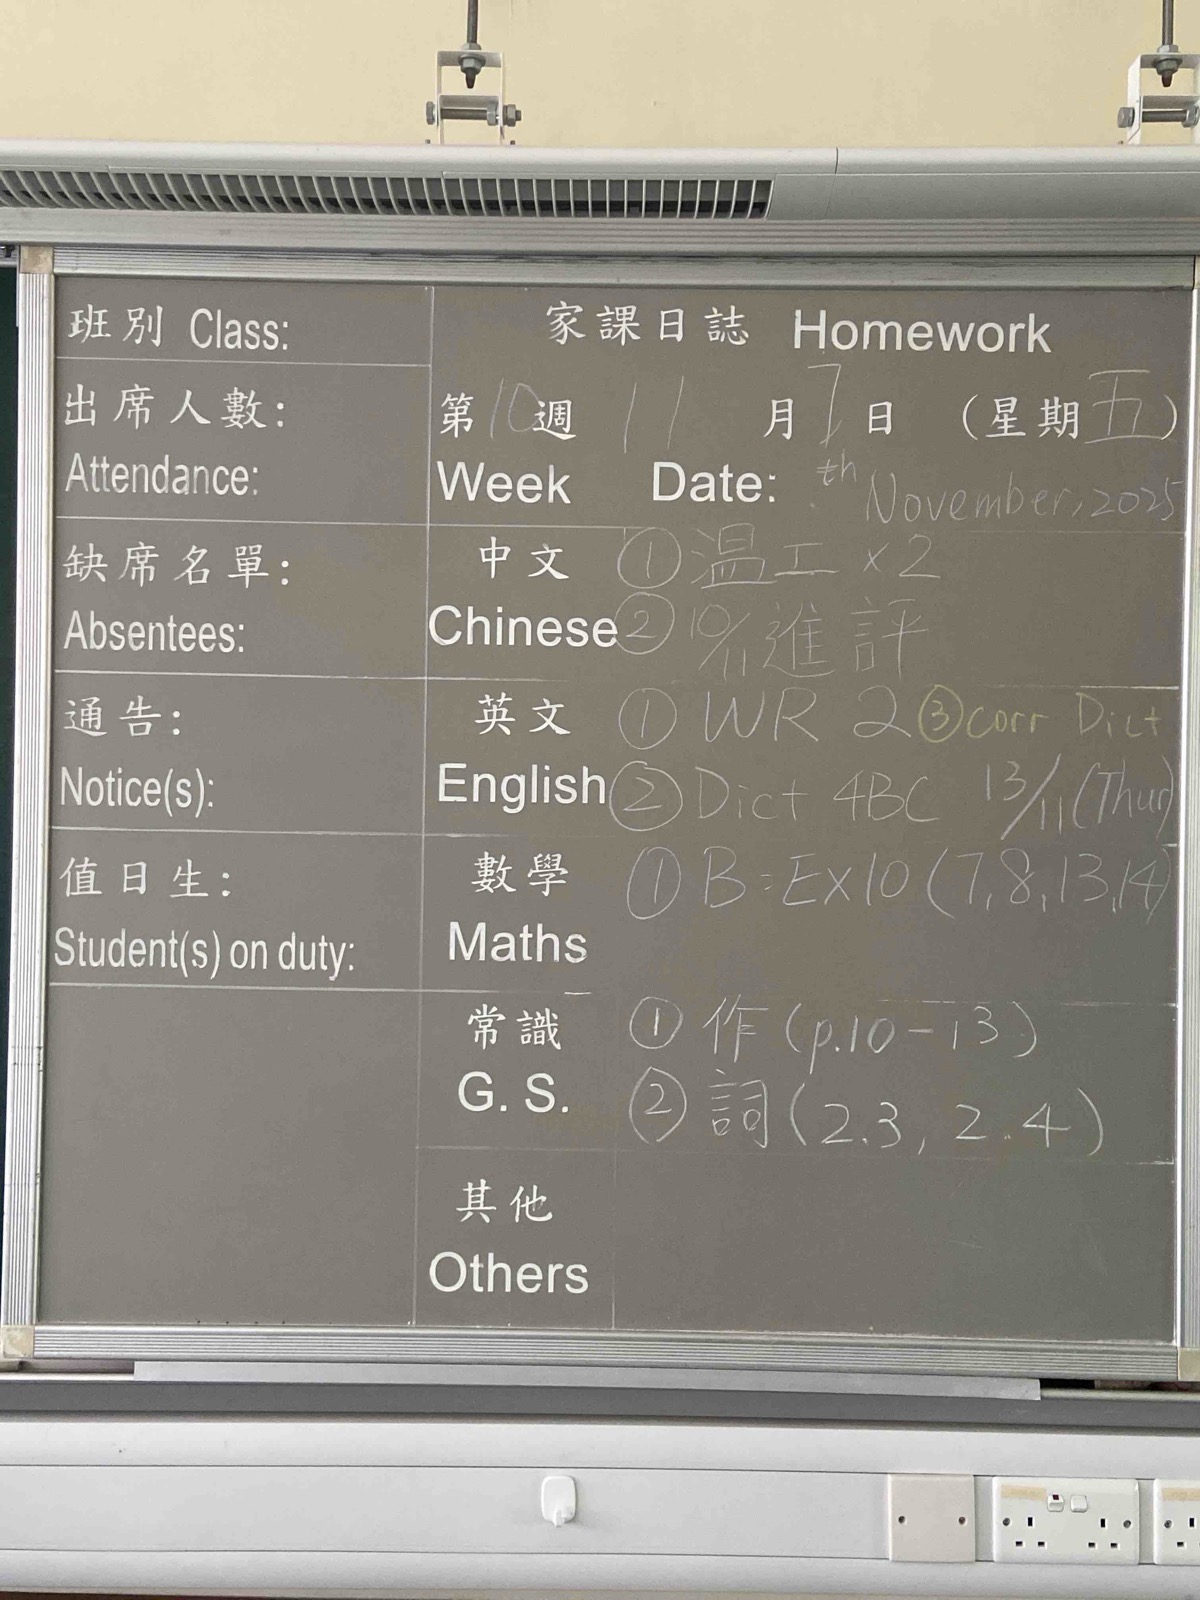 班別 Class:
出席人數:
Attendance:
缺席名單:
Absentees:
通告:
Notice(s):
值日生:
Student(s) on duty:
家課日誌 Homework
第10週 11月7日 (星期五)
Week Date: th November, 2025
中文 ① 温工 x2
Chinese ② 10/11 進評
英文 ① WR 2 ③ corr Dict
English ② Dict 4BC 13/11 (Thur)
數學 ① B: Ex10 (7, 8, 13, 14)
Maths
常識 ① 作 (p.10-13)
G. S. ② 詞 (2.3, 2.4)
其他
Others